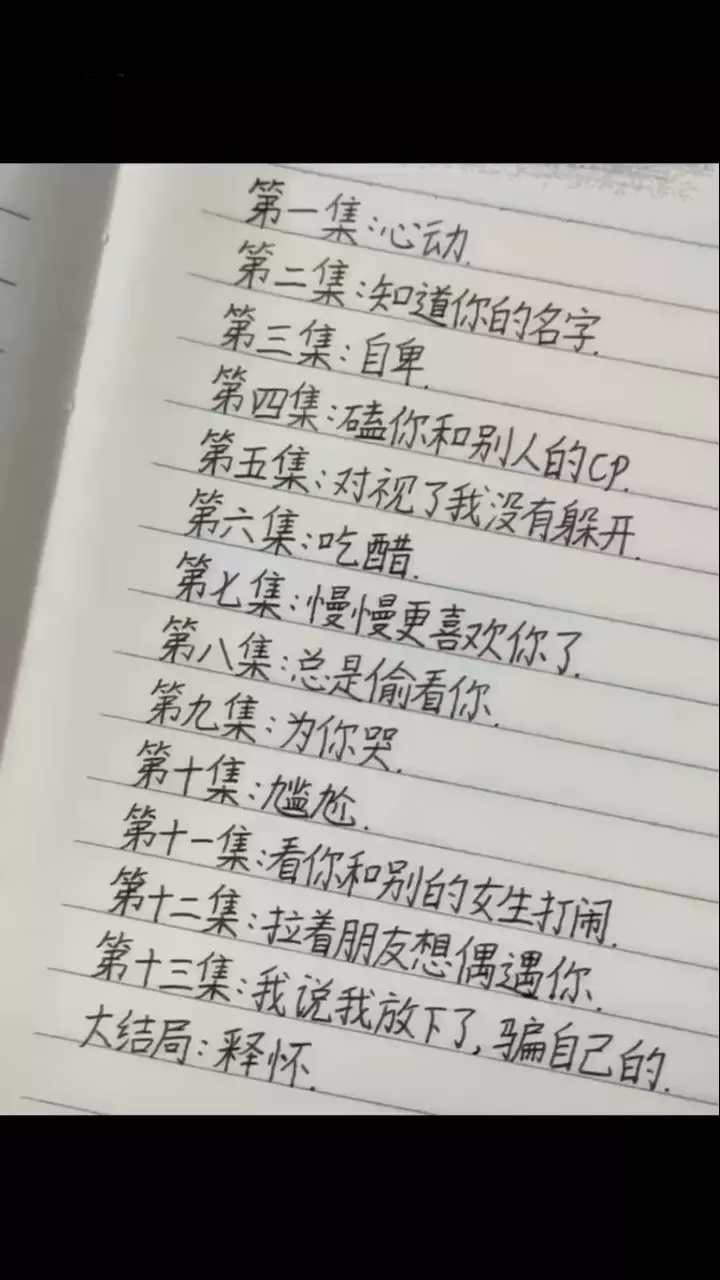 第一集:心动.
第二集:知道你的名字.
第三集:自卑.
第四集:磕你和别人的CP.
第五集:对视了我没有躲开.
第六集:吃醋.
第七集:慢慢更喜欢你了.
第八集:总是偷看你.
第九集:为你哭.
第十集:尴尬.
第十一集:看你和别的女生打闹.
第十二集:拉着朋友想偶遇你.
第十三集:我说我放下了,骗自己的.
大结局:释怀.